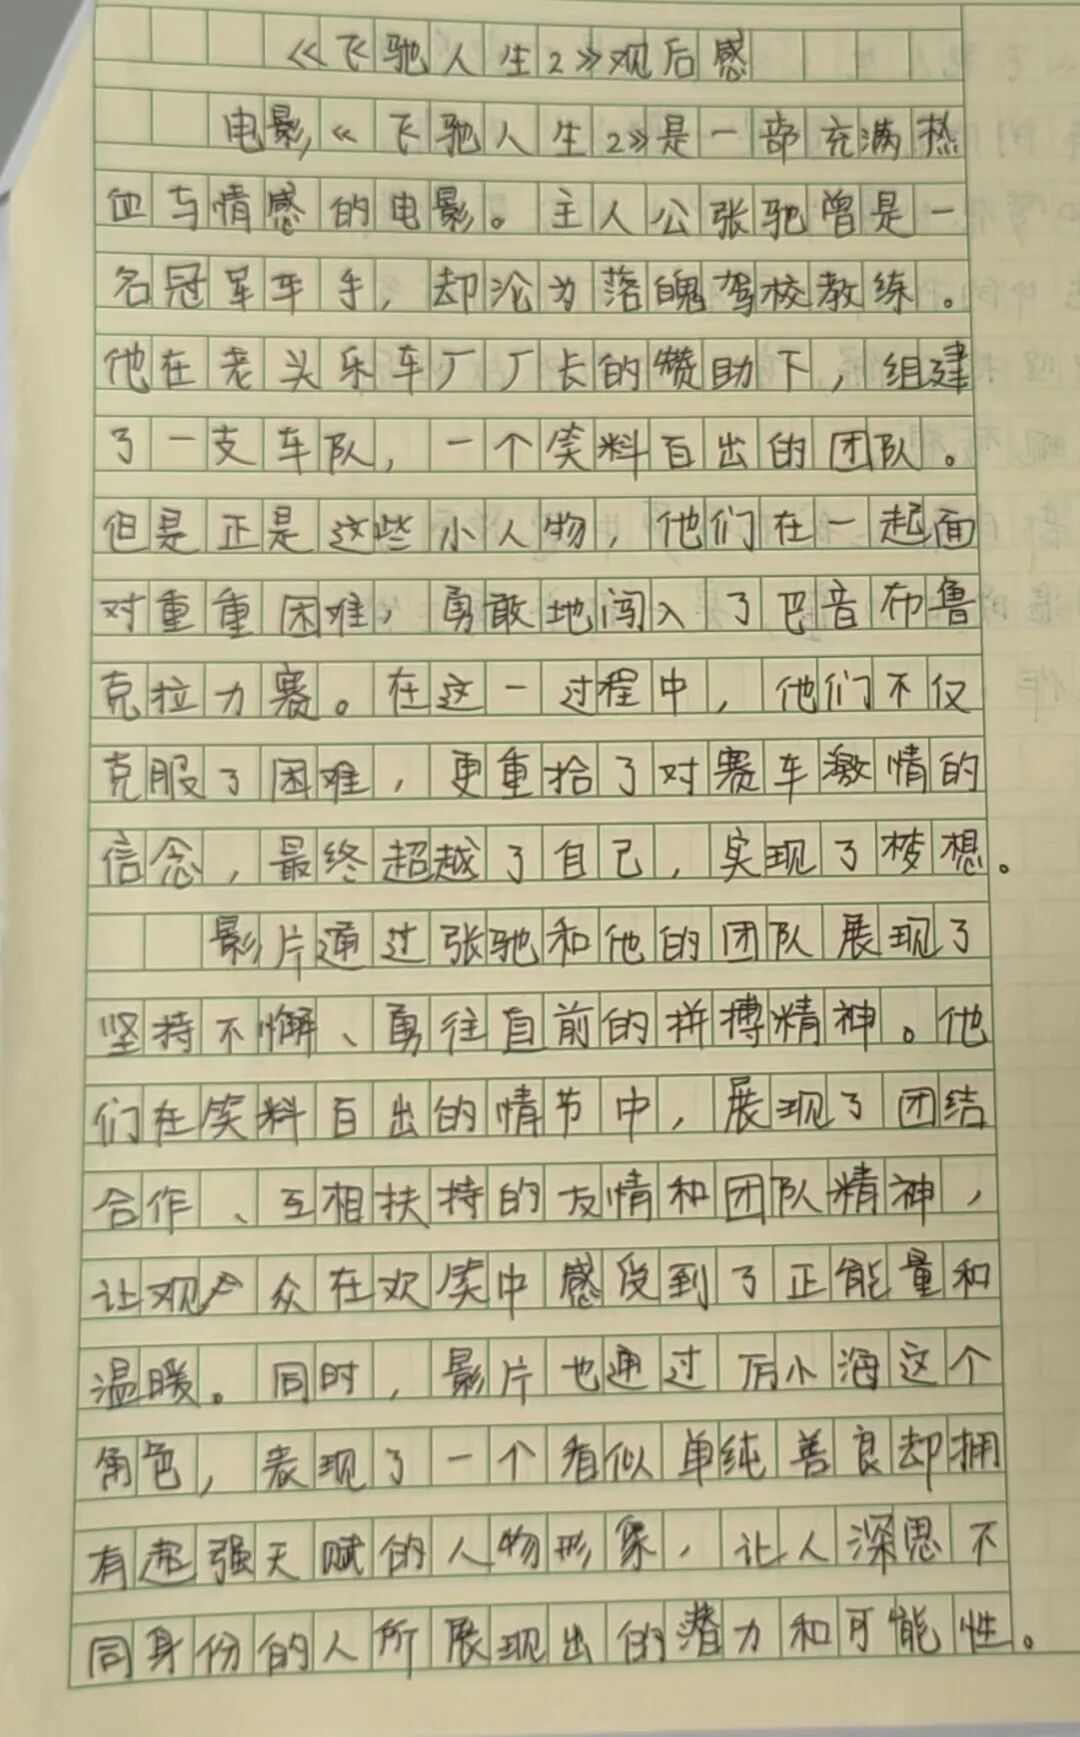 《飞驰人生2》观后感
电影,《飞驰人生2》是一部充满热
血与情感的电影。主人公张驰曾是一
名冠军车手,却沦为落魄驾校教练。
他在老头乐车厂厂长的赞助下,组建
了一支车队,一个笑料百出的团队。
但是正是这些小人物,他们在一起面
对重重困难,勇敢地闯入了巴音布鲁
克拉力赛。在这一过程中,他们不仅
克服了困难,更重拾了对赛车激情的
信念,最终超越了自己,实现了梦想。
影片通过张驰和他的团队展现了
坚持不懈、勇往直前的拼搏精神。他
们在笑料百出的情节中,展现了团结
合作、互相扶持的友情和团队精神,
让观众在欢笑中感受到了正能量和
温暖。同时,影片也通过厉小海这个
角色,表现了一个看似单纯善良却拥
有超强天赋的人物形象,让人深思不
同身份的人所展现出的潜力和可能性。